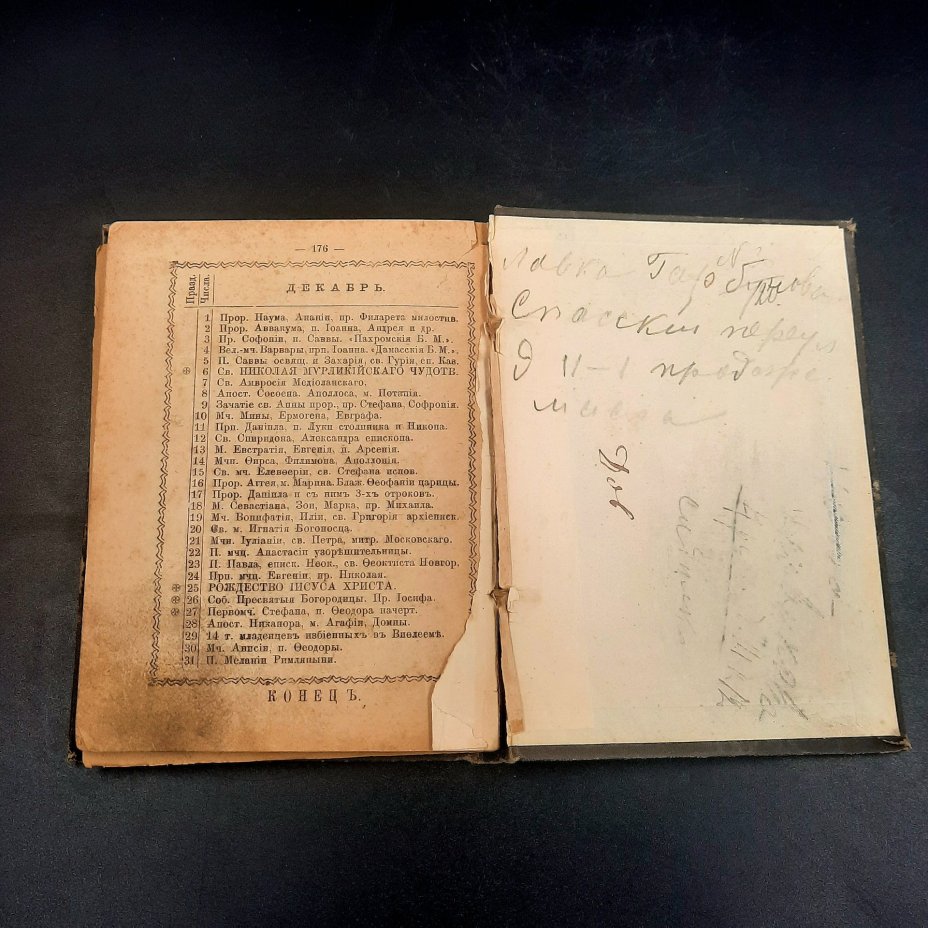 — 176 —
Празд.
Числа.
ДЕКАБРЬ.
1 Прор. Наума, Ананіи, пр. Филарета милостив.
2 Прор. Аввакума, п. Іоанна, Андрея и др.
3 Пр. Софоніи, п. Саввы. «Пахромскія Б. М.».
4 Вел.-мч. Варвары, прп. Іоанна. «Дамасскія Б. М.».
5 П. Саввы освящ. и Захарія, св. Гурія, еп. Каз.
6 Св. НИКОЛАЯ МѴРЛИКІЙСКАГО ЧУДОТВ.
7 Св. Амвросія Медіоланскаго.
8 Апост. Сосѳена. Аполлоса, м. Потапія.
9 Зачатіе св. Анны прор., пр. Стефана, Софронія.
10 Мч. Мины, Ермогена, Евграфа.
11 Прп. Даніила, п. Луки столпника и Никона.
12 Св. Спиридона, Александра епископа.
13 М. Евстратія, Евгенія, п. Арсенія.
14 Мчн. Ѳирса, Филимона, Аполлонія.
15 Св. мч. Елевѳерія, св. Стефана испов.
16 Прор. Аггея, м. Марина. Блаж. Ѳеофаніи царицы.
17 Прор. Даніила и съ ним 3-хъ отроковъ.
18 М. Севастіана, Зои, Марка, пр. Михаила.
19 Мч. Вонифатія, Иліи, св. Григорія архіеписк.
20 Св. м. Игнатія Богоносца.
21 Мчи. Іуліаніи, св. Петра, митр. Московскаго.
22 П. мчц. Анастасіи узорѣшительницы.
23 П. Павла, еписк. Неок., св. Ѳеоктиста Новгор.
24 Прп. мчц. Евгеніи, пр. Николая.
25 РОЖДЕСТВО ІИСУСА ХРИСТА.
26 Соб. Пресвятыя Богородицы. Пр. Іосифа.
27 Первомч. Стефана, п. Ѳеодора начерт.
28 Апост. Никанора, м. Агафіи, Домны.
29 14 т. младенцевъ избіенныхъ въ Виѳлеемѣ.
30 Мч. Анисіи, п. Ѳеодоры.
31 П. Меланіи Римляныни.
КОНЕЦЪ.
Лавка
Спасскій переул
Д 11–1